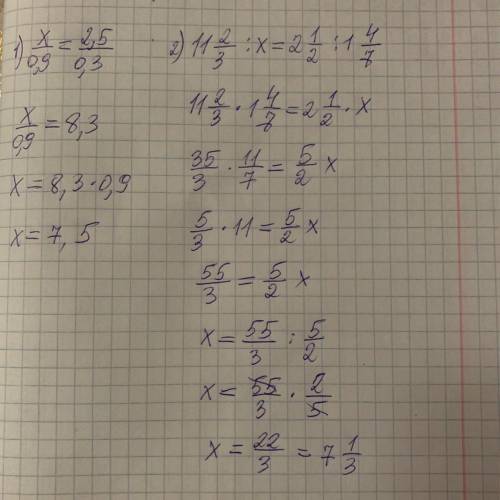 1) x/0,9 = 2,5/0,3
x/0,9 = 8,3
x = 8,3 · 0,9
x = 7,5
2) 11 2/3 : x = 2 1/2 : 1 4/7
11 2/3 · 1 4/7 = 2 1/2 · x
35/3 · 11/7 = 5/2 x
5/3 · 11 = 5/2 x
55/3 = 5/2 x
x = 55/3 : 5/2
x = 55/3 · 2/5
x = 22/3 = 7 1/3